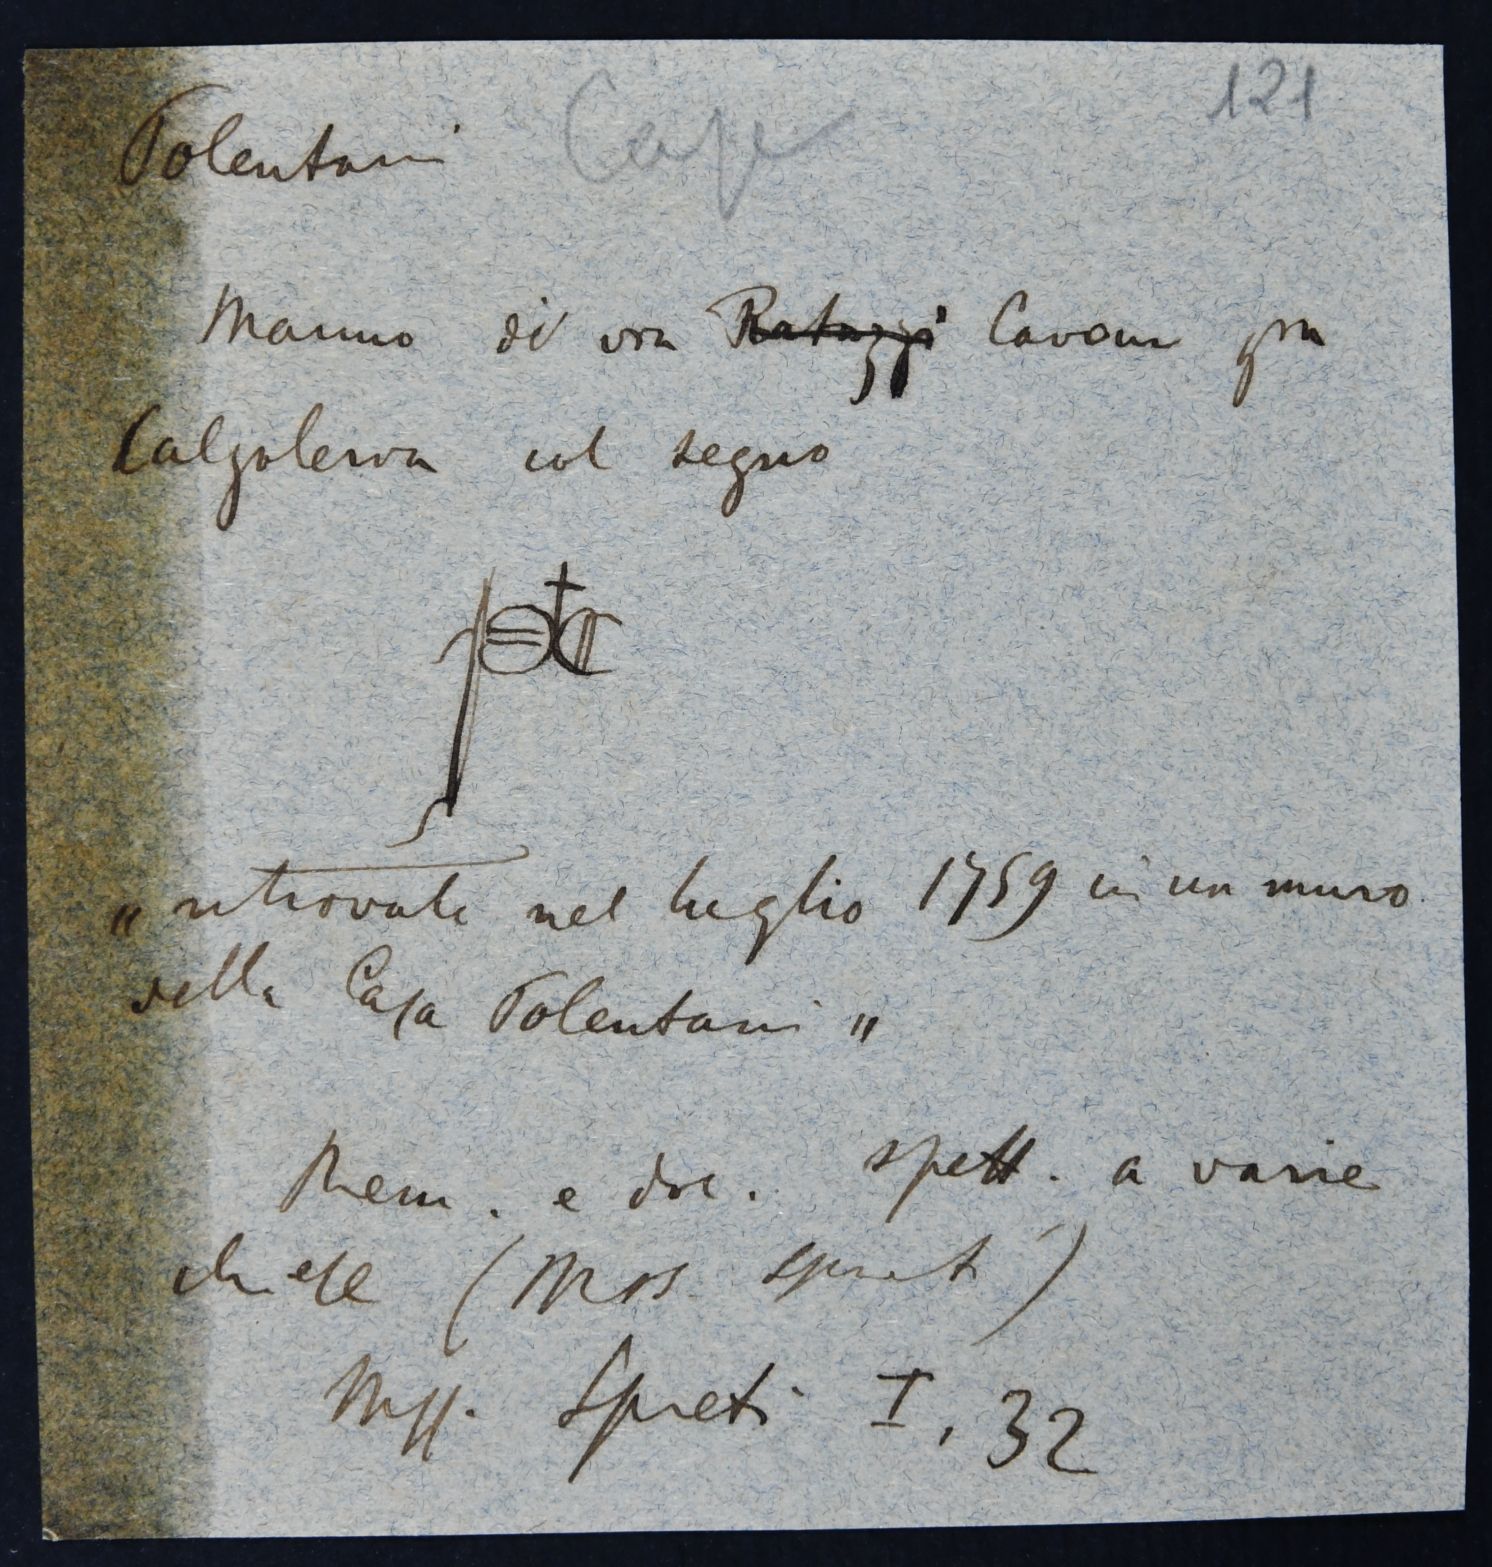 Polentani Case 121
Marmo di via Ratazzi Cavour già
Calzoleria col segno
„ ritrovato nel luglio 1759 in un muro
della Casa Polentani „
Mem. e doc. spett. a varie
chiese (Mss. Spreti)
Mss. Spreti I, 32